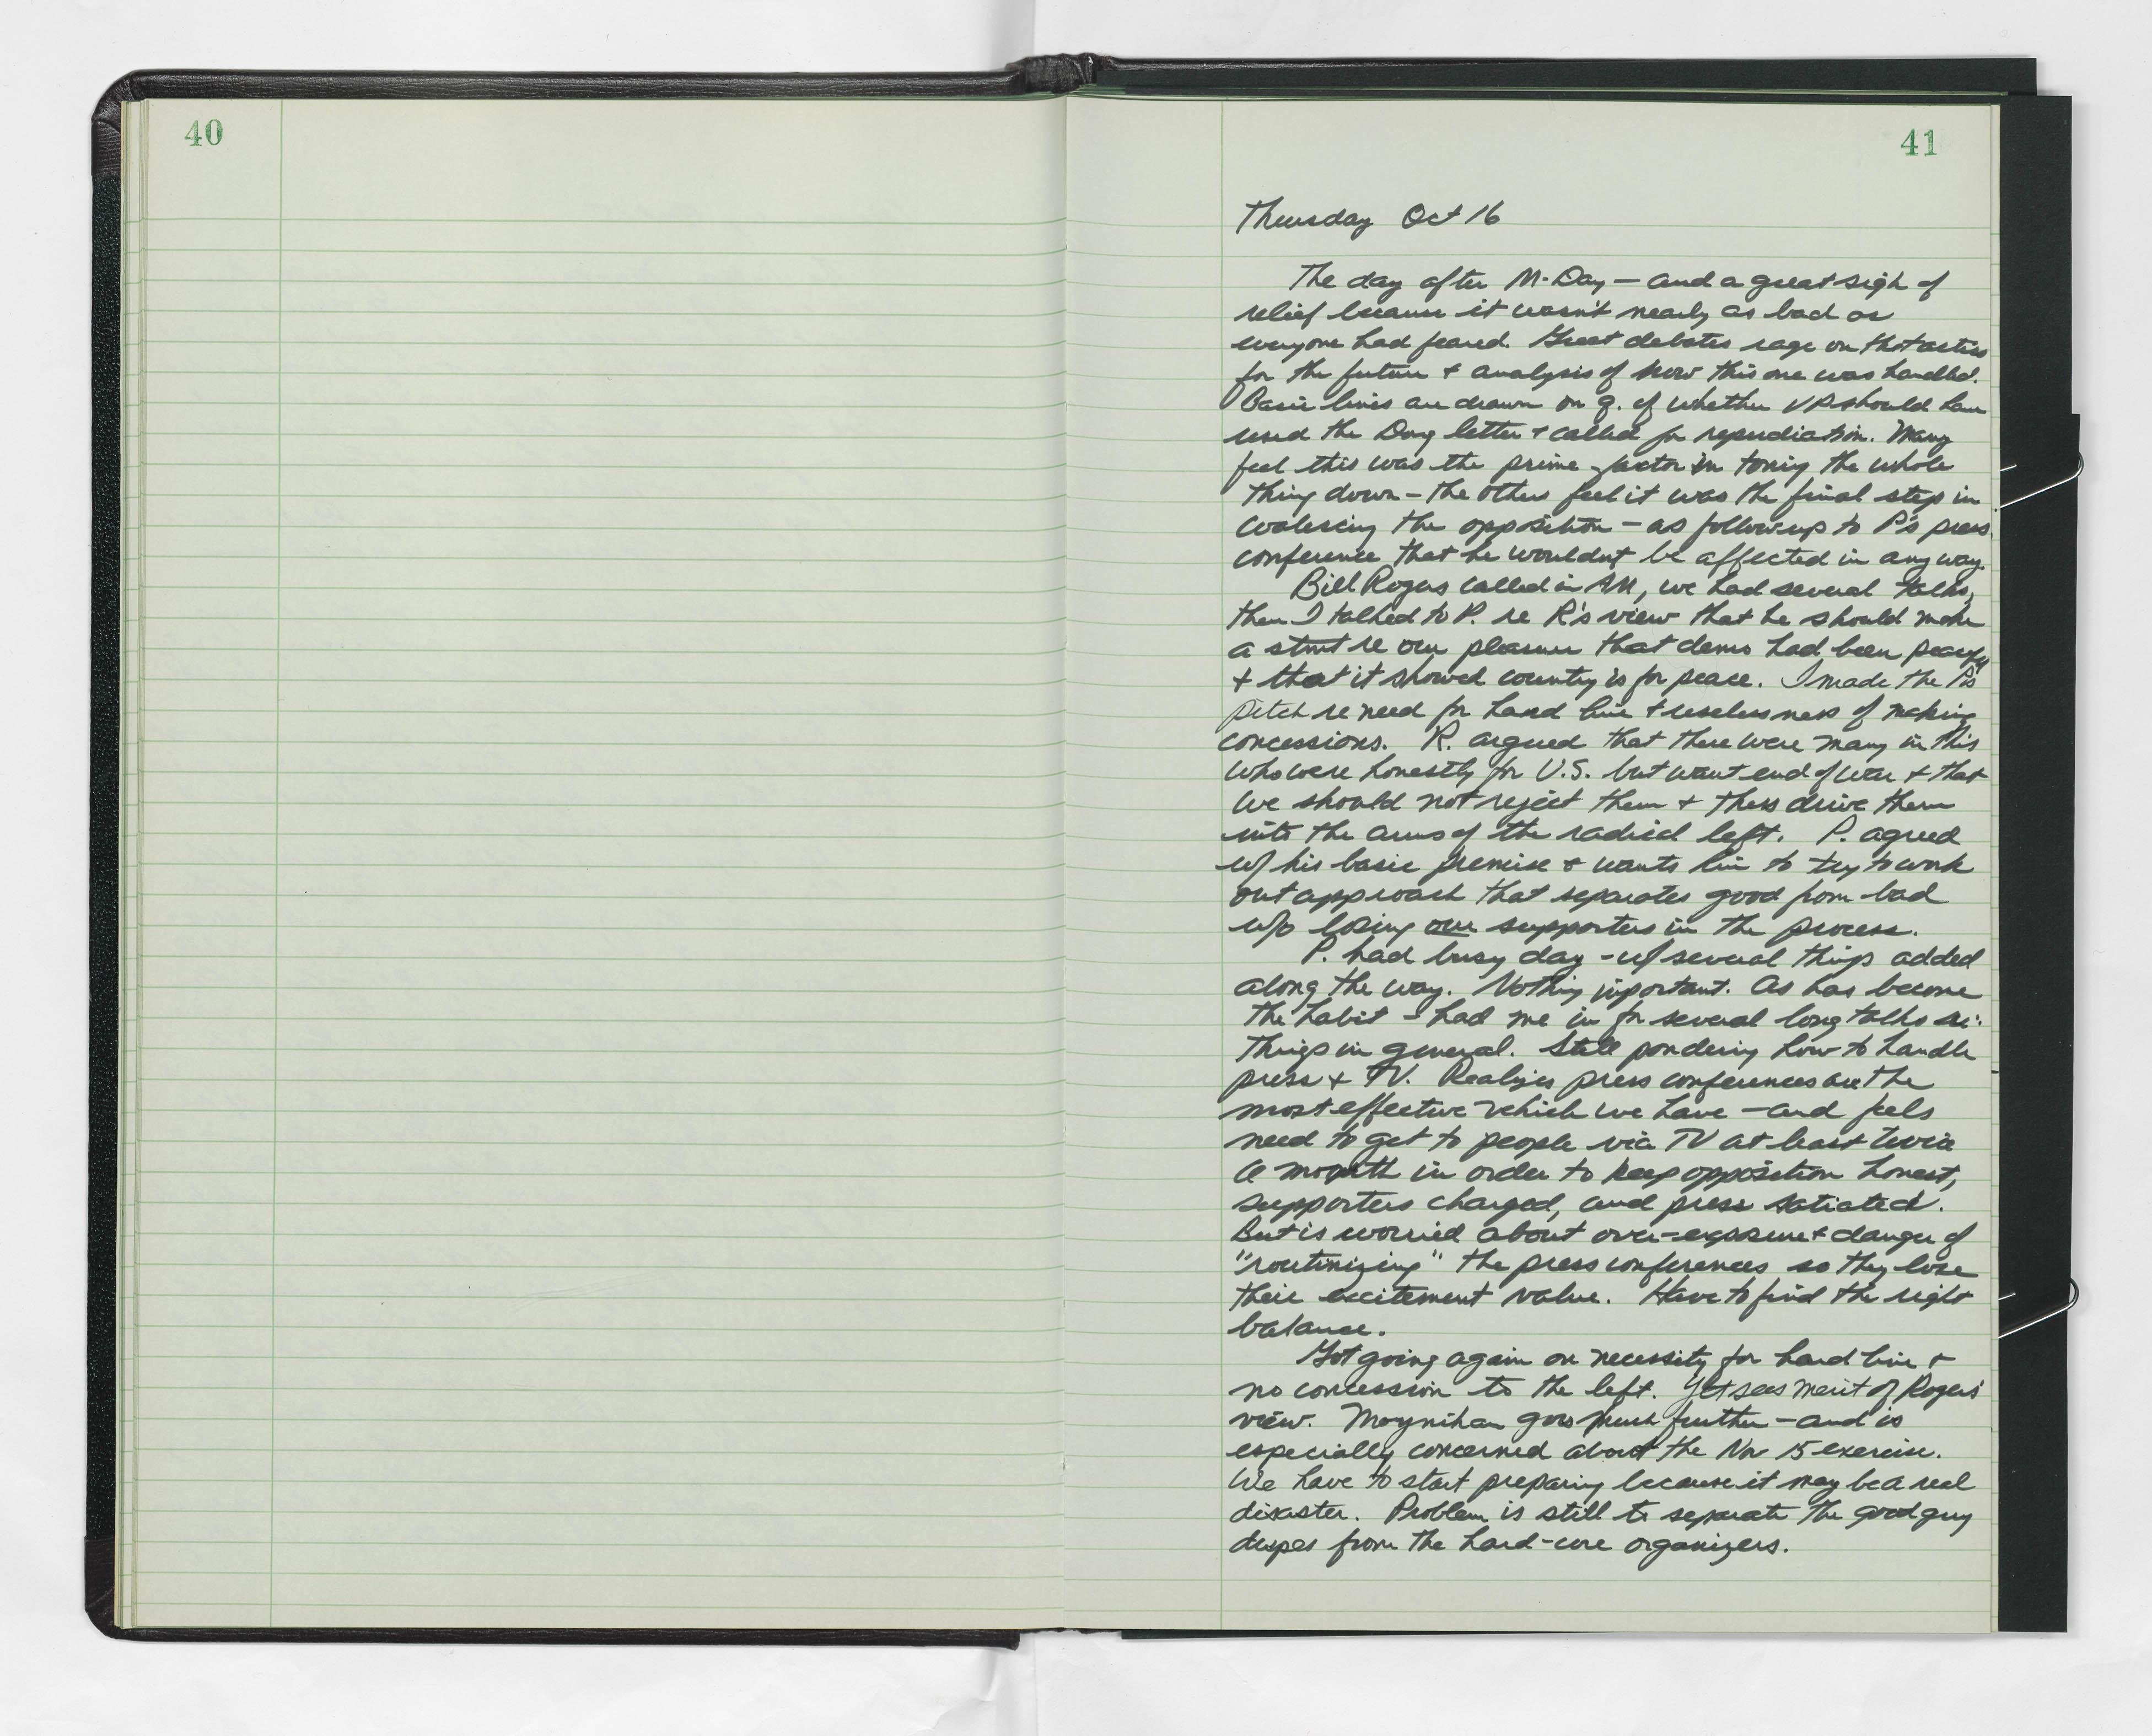 40
41
Thursday Oct 16
The day after M-Day — and a great sigh of
relief because it wasn't nearly as bad as
everyone had feared. Great debates rage on th tactics
for the future + analysis of how this one was handled.
Basic lines are drawn on q. of whether VP should have
used the Dong letter + called for repudiation. Many
feel this was the prime factor in toning the whole
thing down — the others feel it was the final step in
coalescing the opposition — as follow up to P's press
conference that he wouldn't be affected in any way.
Bill Rogers called in AM, we had several talks,
then I talked to P. re R's view that he should make
a stmt re our pleasure that demo had been peaceful
+ that it showed country is for peace. I made the P's
pitch re need for hard line + uselessness of making
concessions. R. argued that there were many in this
who were honestly for U.S. but want end of war + that
we should not reject them + thus drive them
into the arms of the radical left. P. agreed
w/ his basic premise + wants him to try to work
out approach that separates good from bad
w/o losing our supporters in the process.
P. had busy day - w/ several things added
along the way. Nothing important. As has become
the habit - had me in for several long talks re:
things in general. Still pondering how to handle
press + TV. Realizes press conferences are the
most effective vehicle we have — and feels
need to get to people via TV at least twice
a month in order to keep opposition honest,
supporters charged, and press satiated.
But is worried about over-exposure + danger of
"routinizing" the press conferences so they lose
their excitement value. Have to find the right
balance.
Got going again on necessity for hard line +
no concession to the left. Yet sees merit of Rogers'
view. Moynihan goes much further — and is
especially concerned about the Nov 15 exercise.
We have to start preparing because it may be a real
disaster. Problem is still to separate the good guy
dupes from the hard-core organizers.